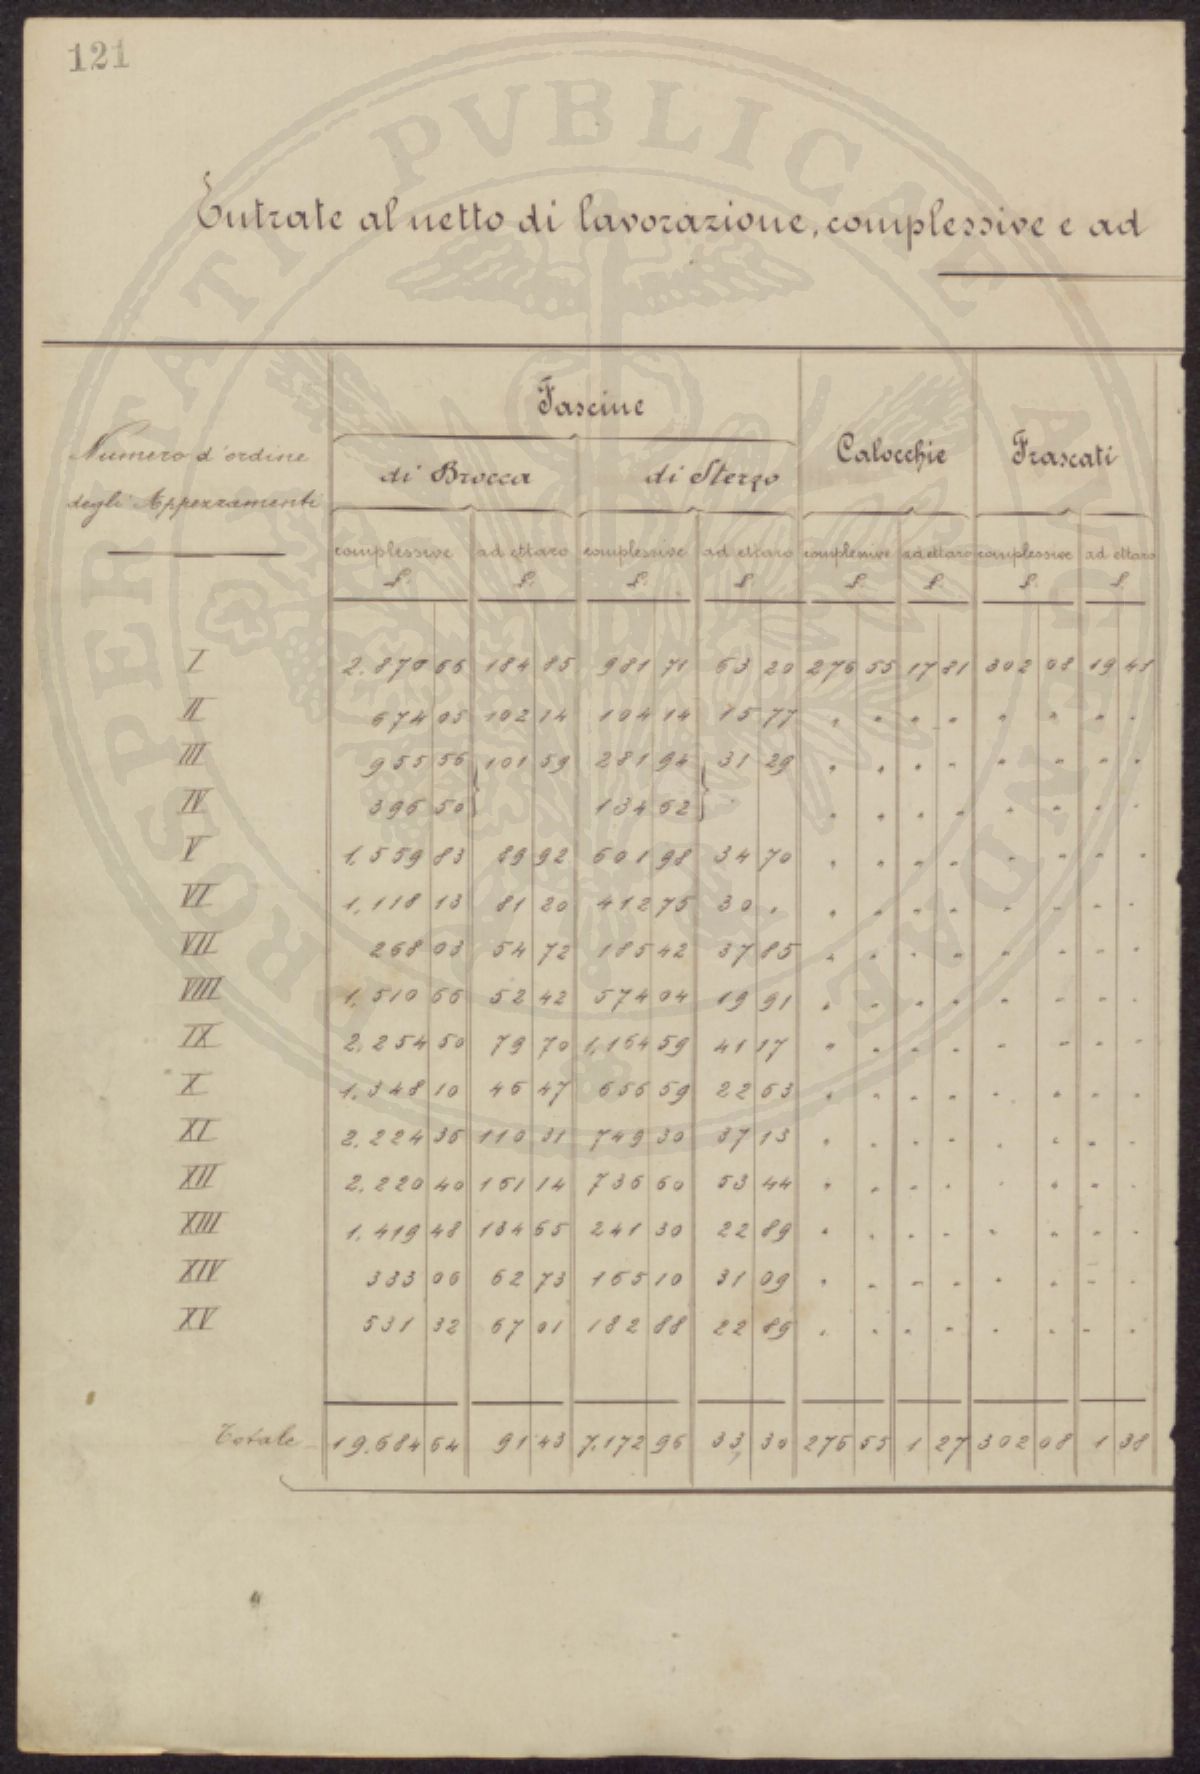 121
PROSPERITATI PVBLICAE AVGENDAE
Entrate al netto di lavorazione, complessive e ad
Numero d'ordine degli Appezzamenti
Fascine
di Brocca di Sterzo
Calocchie
Frascati
complessive ad ettaro complessive ad ettaro complessive ad ettaro complessive ad ettaro
£. £. £. £. £. £. £. £.
I 2.870 66 184 85 981 71 63 20 276 55 17 81 302 08 19 45
II 674 05 102 14 104 14 15 77 " " " " " " " "
III 955 56 101 59 281 94 31 29 " " " " " " " "
IV 396 50 134 62 " " " " " " " "
V 1.559 83 89 92 601 98 34 70 " " " " " " " "
VI 1.118 13 81 20 412 75 30 " " " " " " " " "
VII 268 03 54 72 185 42 37 85 " " " " " " " "
VIII 1.510 66 52 42 574 04 19 91 " " " " " " " "
IX 2.254 50 79 70 1,164 59 41 17 " " " " " " " "
X 1.348 10 46 47 656 59 22 63 " " " " " " " "
XI 2.224 36 110 31 749 30 37 13 " " " " " " " "
XII 2.220 40 161 14 736 60 53 44 " " " " " " " "
XIII 1.419 48 134 65 241 30 22 89 " " " " " " " "
XIV 333 06 62 73 165 10 31 09 " " " " " " " "
XV 531 32 67 01 182 88 22 89 " " " " " " " "
Totale 19.684 64 91 43 7.172 96 33 30 276 55 1 27 302 08 1 38